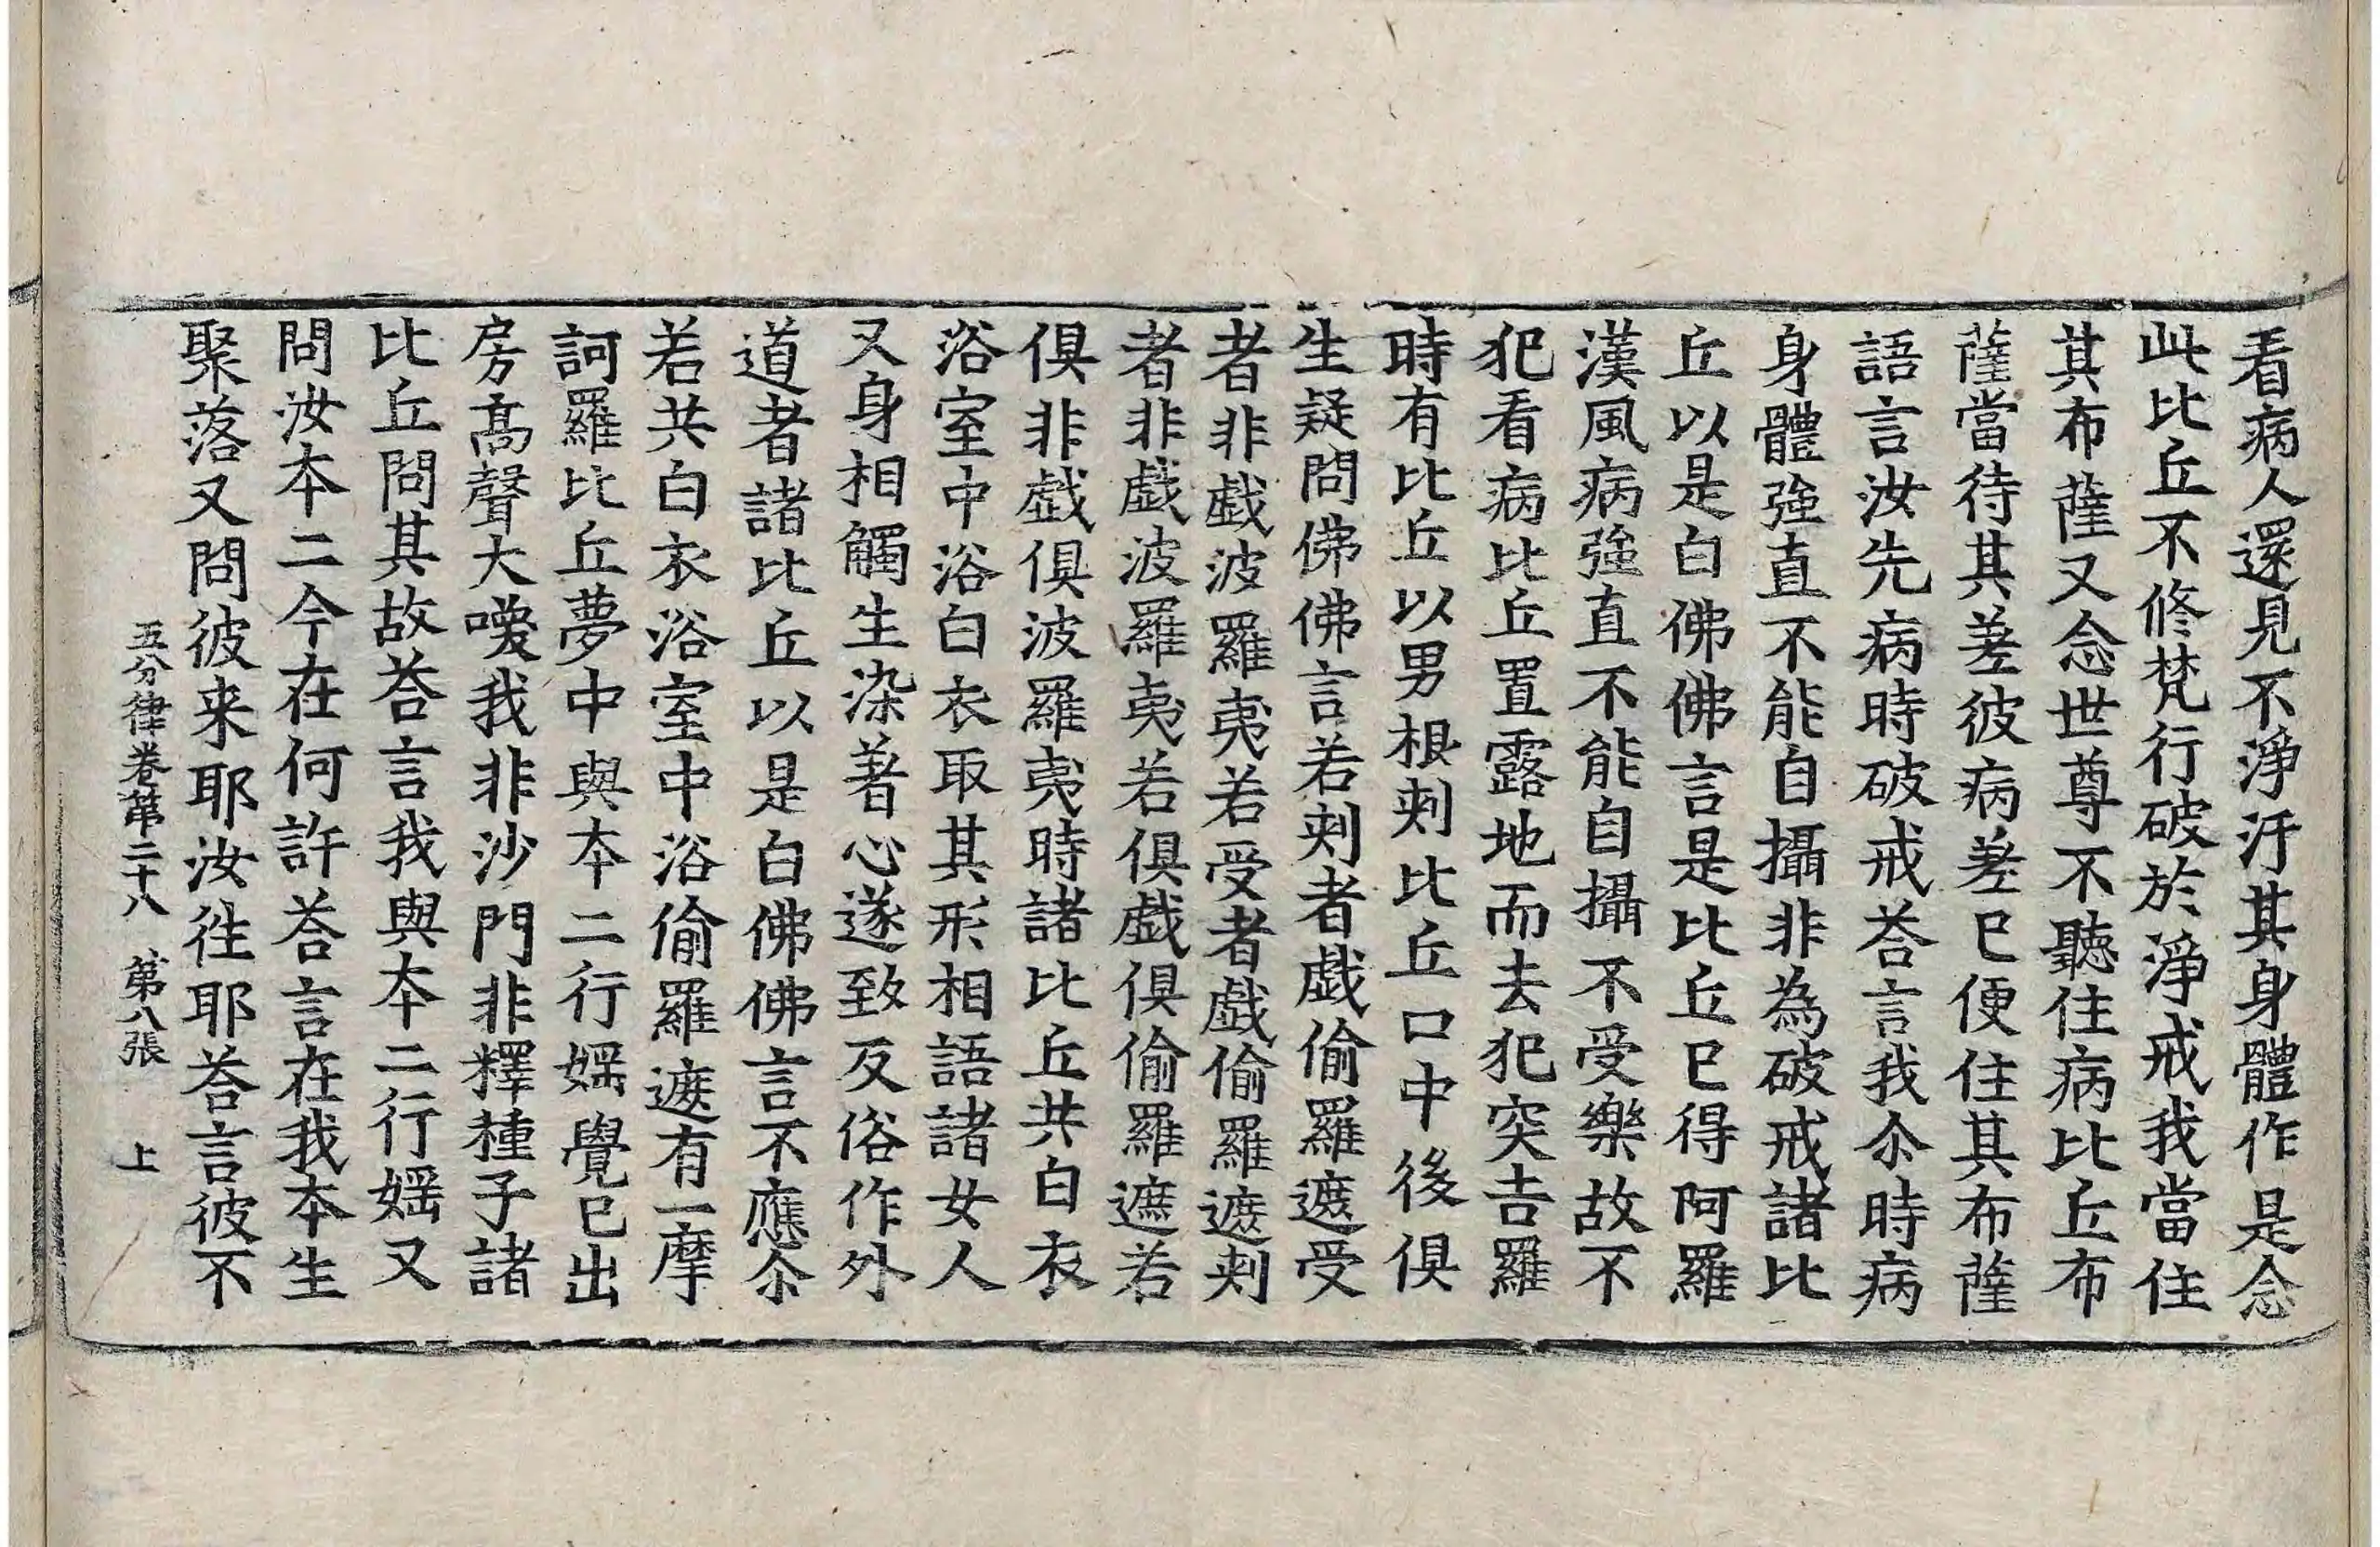 看病人還見不淨汙其身體作是念
此比丘不修梵行破於淨戒我當住
其布薩又念世尊不聽住病比丘布
薩當待其差彼病差已便住其布薩
語言汝先病時破戒荅言我尒時病
身體強直不能自攝非為破戒諸比
丘以是白佛佛言是比丘已得阿羅
漢風病強直不能自攝不受樂故不
犯看病比丘置露地而去犯突吉羅
時有比丘以男根刾比丘口中後俱
生疑問佛佛言若刾者戯偷羅遮受
者非戯波羅夷若受者戯偷羅遮刾
者非戯波羅夷若俱戯俱偷羅遮若
俱非戯俱波羅夷時諸比丘共白衣
浴室中浴白衣取其形相語諸女人
又身相觸生染著心遂致反俗作外
道者諸比丘以是白佛佛言不應尒
若共白衣浴室中浴偷羅遮有一摩
訶羅比丘夢中與本二行婬覺已出
房高聲大喚我非沙門非釋種子諸
比丘問其故荅言我與本二行婬又
問汝本二今在何許荅言在我本生
聚落又問彼来耶汝往耶荅言彼不
五分律卷第二十八 第八張 上